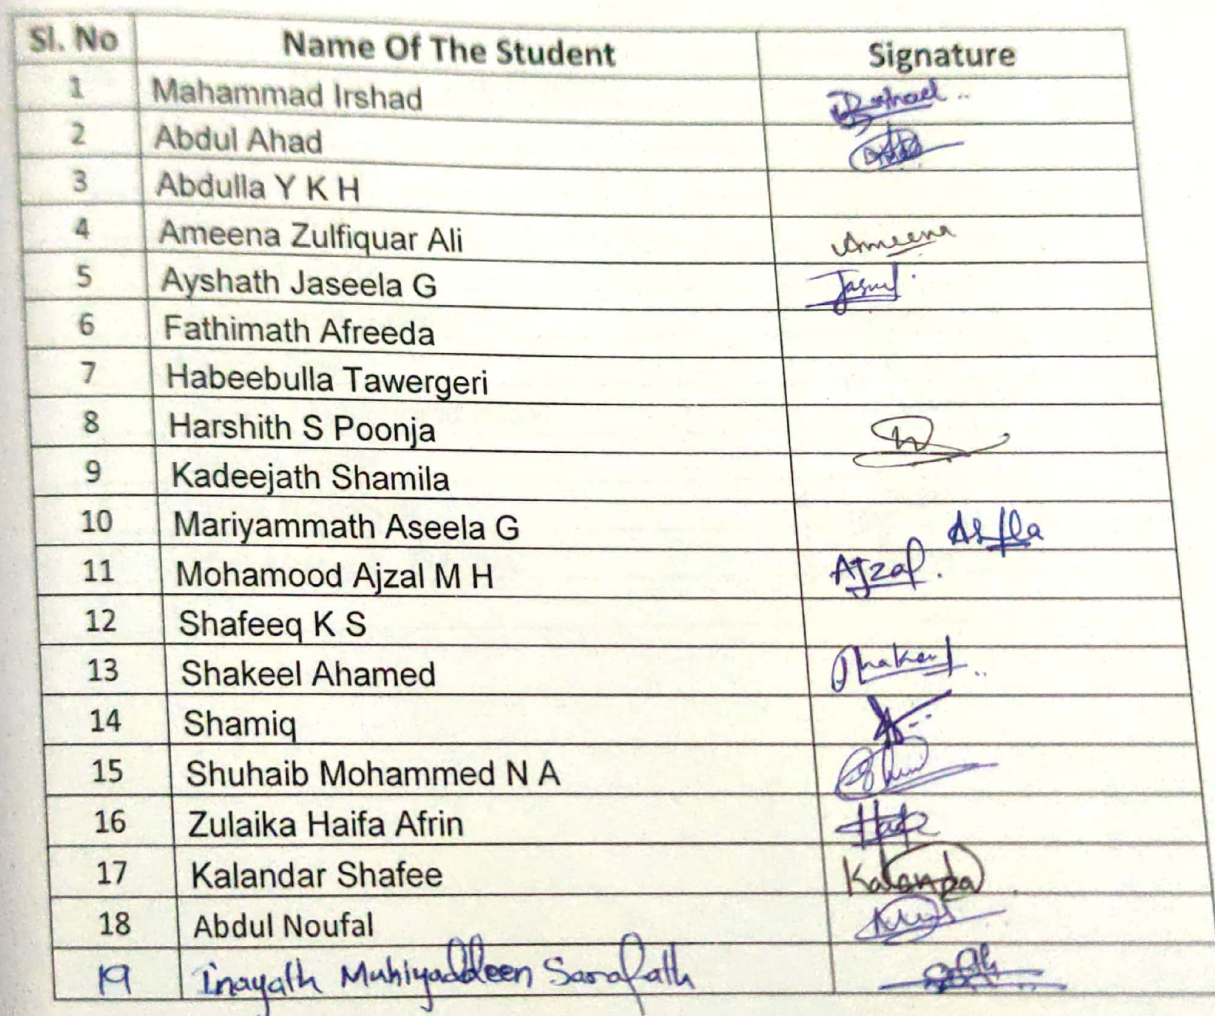 Sl. No Name Of The Student Signature
1 Mahammad Irshad
2 Abdul Ahad
3 Abdulla Y K H
4 Ameena Zulfiquar Ali Ameena
5 Ayshath Jaseela G
6 Fathimath Afreeda
7 Habeebulla Tawergeri
8 Harshith S Poonja
9 Kadeejath Shamila
10 Mariyammath Aseela G
11 Mohamood Ajzal M H Ajzal.
12 Shafeeq K S
13 Shakeel Ahamed
14 Shamiq
15 Shuhaib Mohammed N A
16 Zulaika Haifa Afrin
17 Kalandar Shafee
18 Abdul Noufal
19 Inayath Muhiyaddeen Sarafath